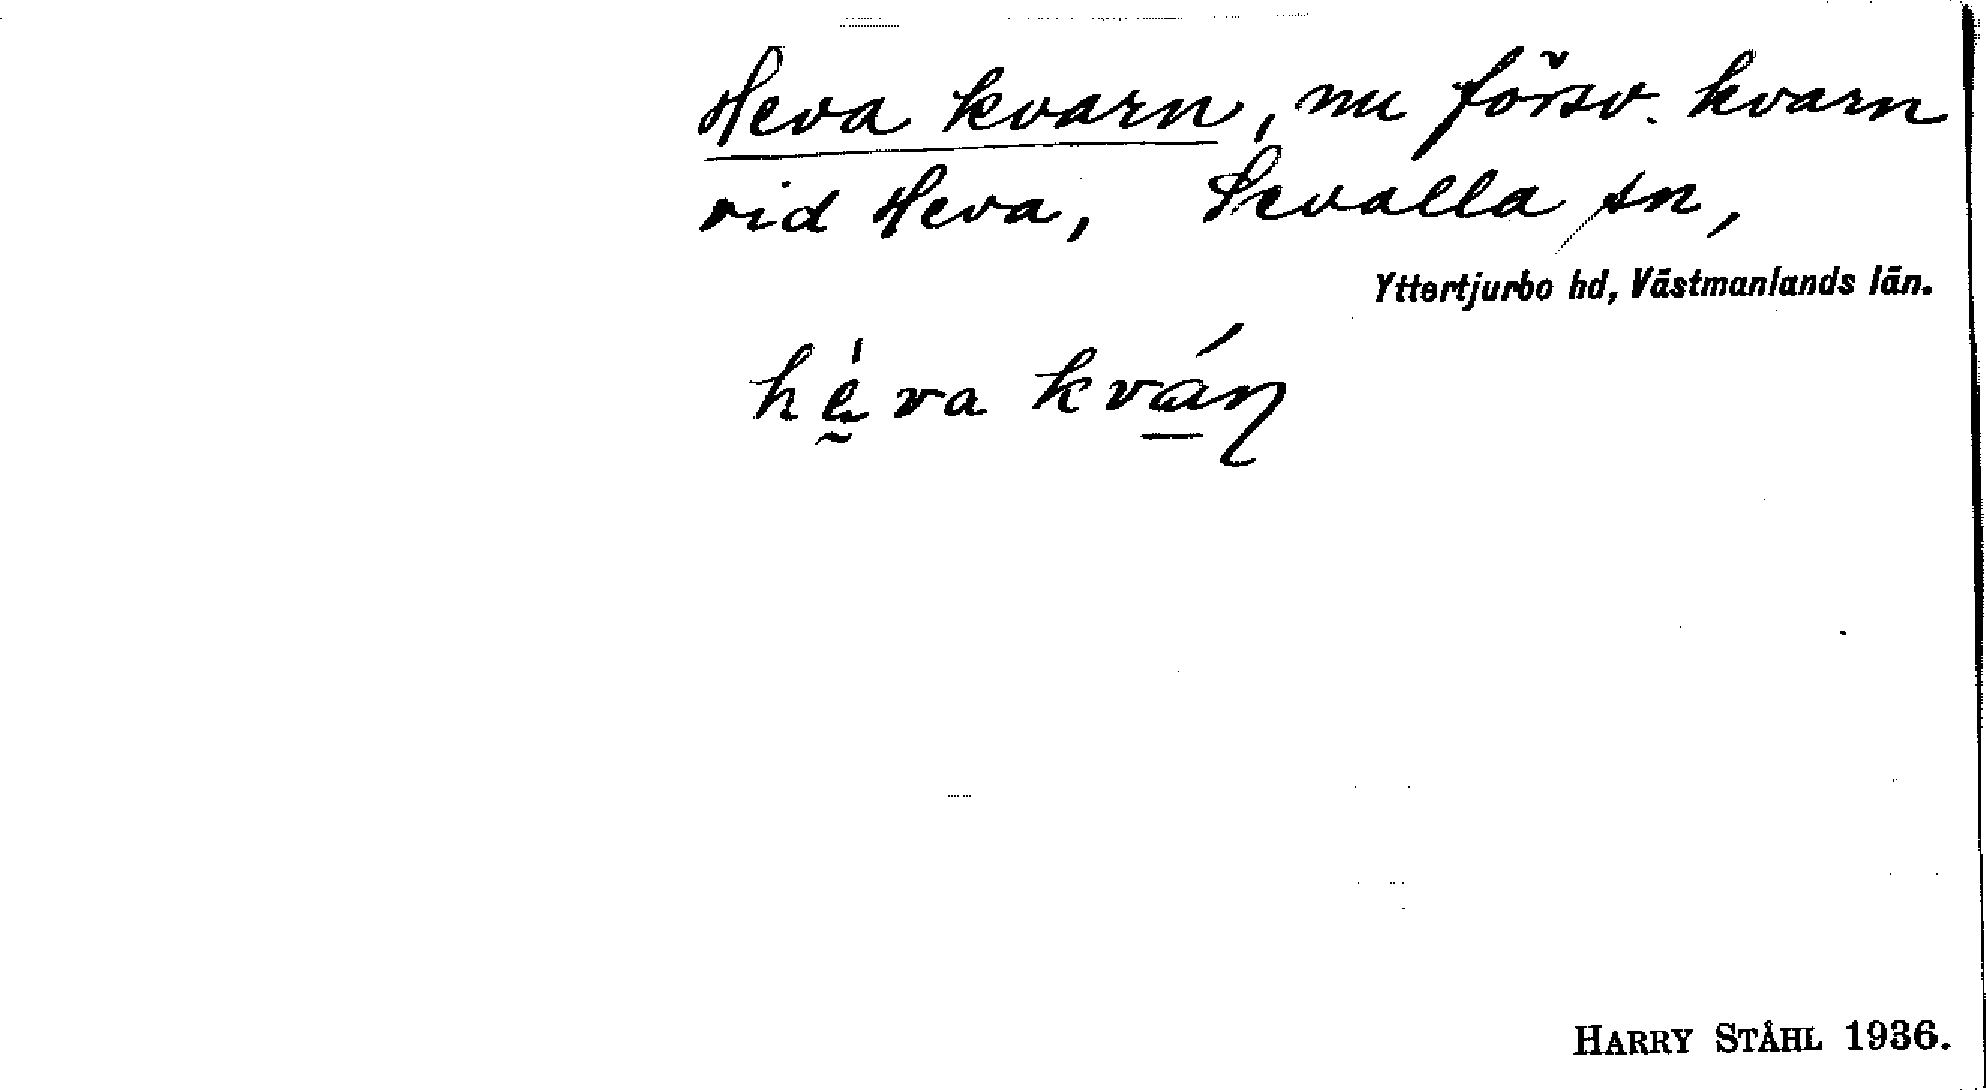 Heva kvarn, nu försv. kvarn
vid Heva, Sevalla sn,
Yttertjurbo hd, Västmanlands län.
hḛ̀va kvá̱ɳ
HARRY STÅHL 1936.